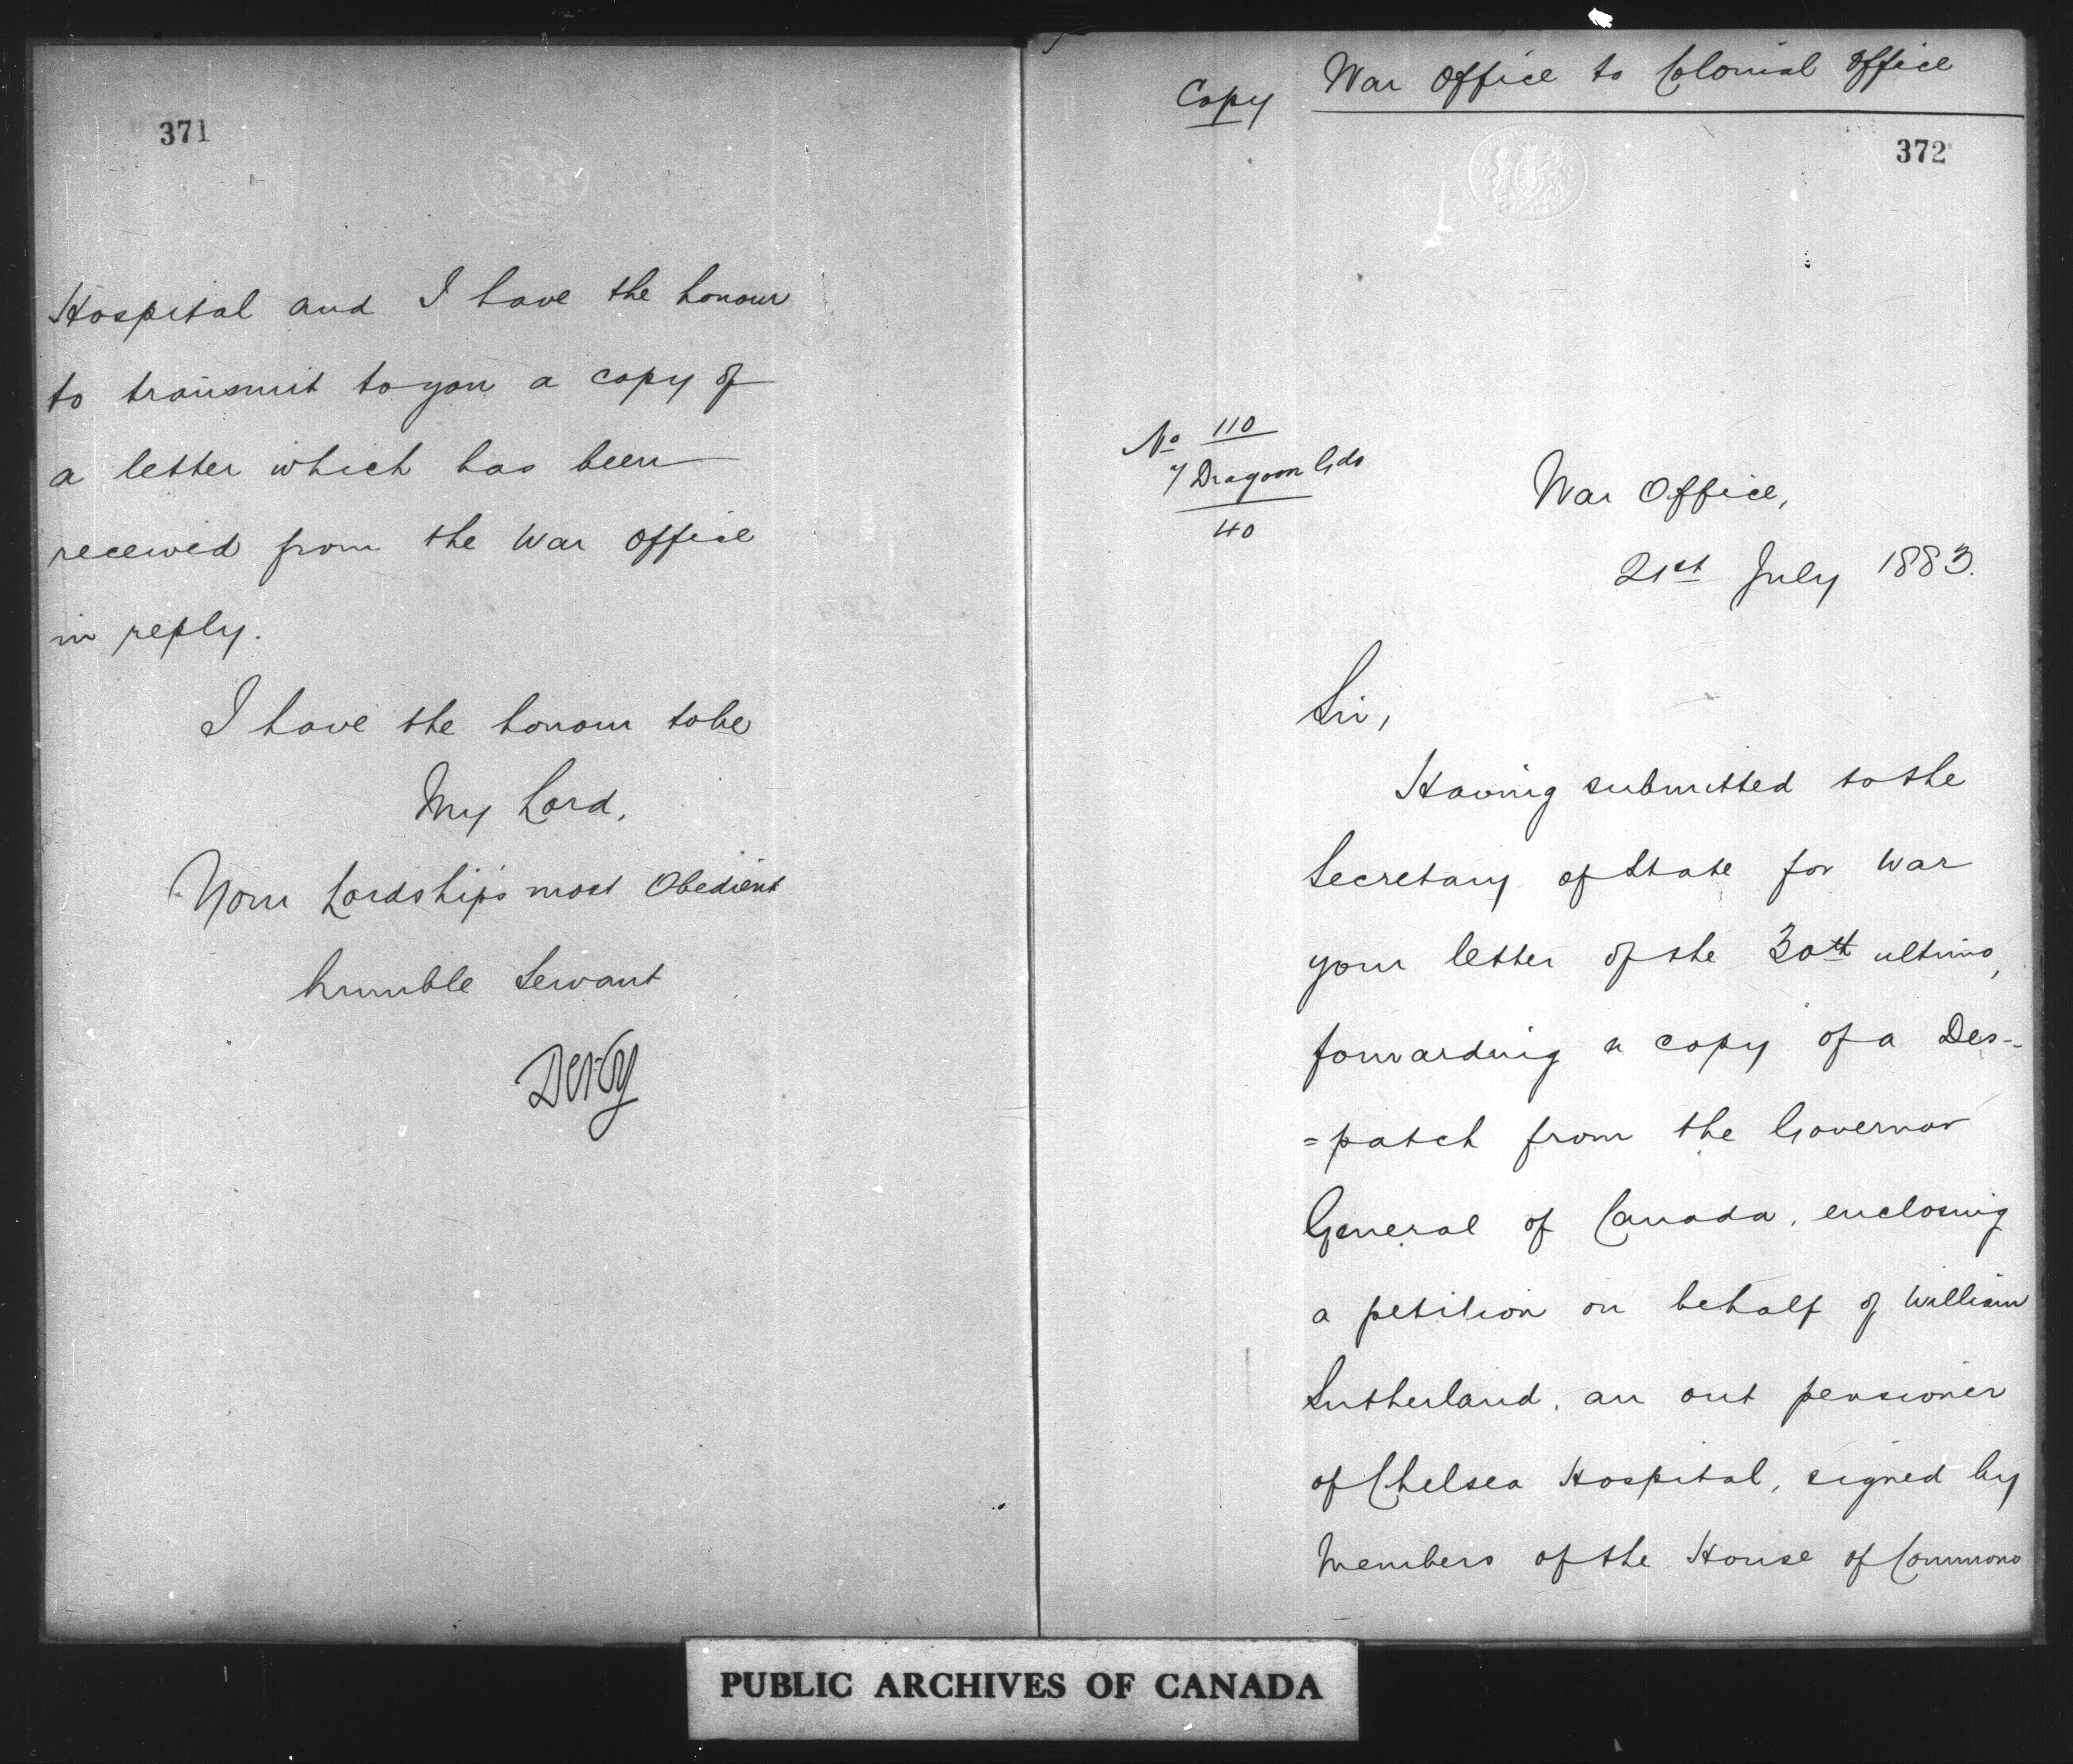 371
Hospital and I have the honour
to transmit to you a copy of
a letter which has been
received from the War Office
in reply.
I have the honour to be
My Lord,
Your Lordship's most Obedient
humble Servant
Derby
War Office to Colonial Office
Copy
372
No 110
7 Dragoon Gds
40
War Office,
21st July 1883.
Sir,
Having submitted to the
Secretary of State for War
your letter of the 30th ultimo,
forwarding a copy of a Des-
=patch from the Governor
General of Canada, enclosing
a petition on behalf of William
Sutherland, an out pensioner
of Chelsea Hospital, signed by
Members of the House of Commons
PUBLIC ARCHIVES OF CANADA